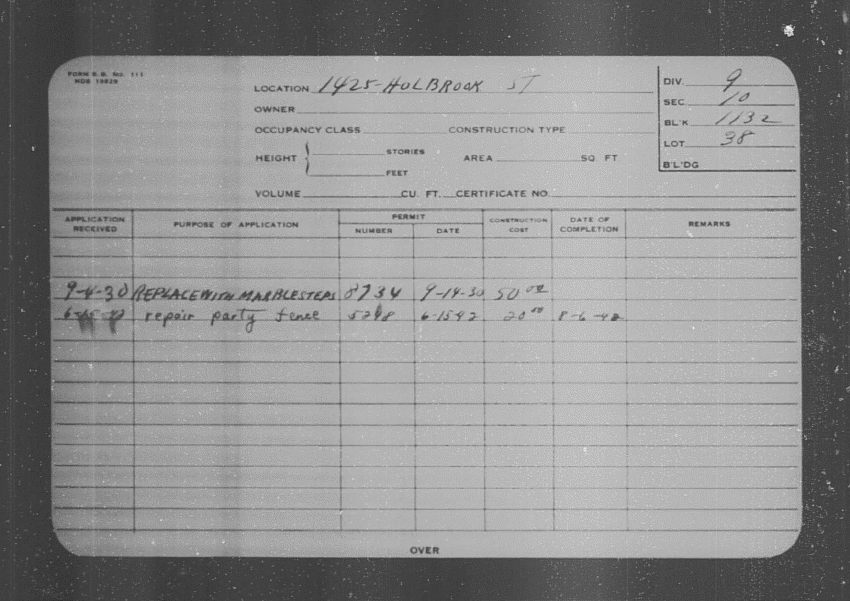 FORM B.B. No. 111
DIV. 9
LOCATION 1425-HOLBROOK ST
SEC 10
OWNER
BL'K 1132
OCCUPANCY CLASS CONSTRUCTION TYPE
LOT 38
STORIES
HEIGHT AREA SQ FT
B'L'DG
FEET
VOLUME CU. FT. CERTIFICATE NO.
APPLICATION RECEIVED PURPOSE OF APPLICATION PERMIT NUMBER DATE CONSTRUCTION COST DATE OF COMPLETION REMARKS
9-4-30 REPLACE WITH MARBLE STEPS 8734 9-14-30 50 00
repair party fence 6-15 42 20 00 8-6-42
OVER